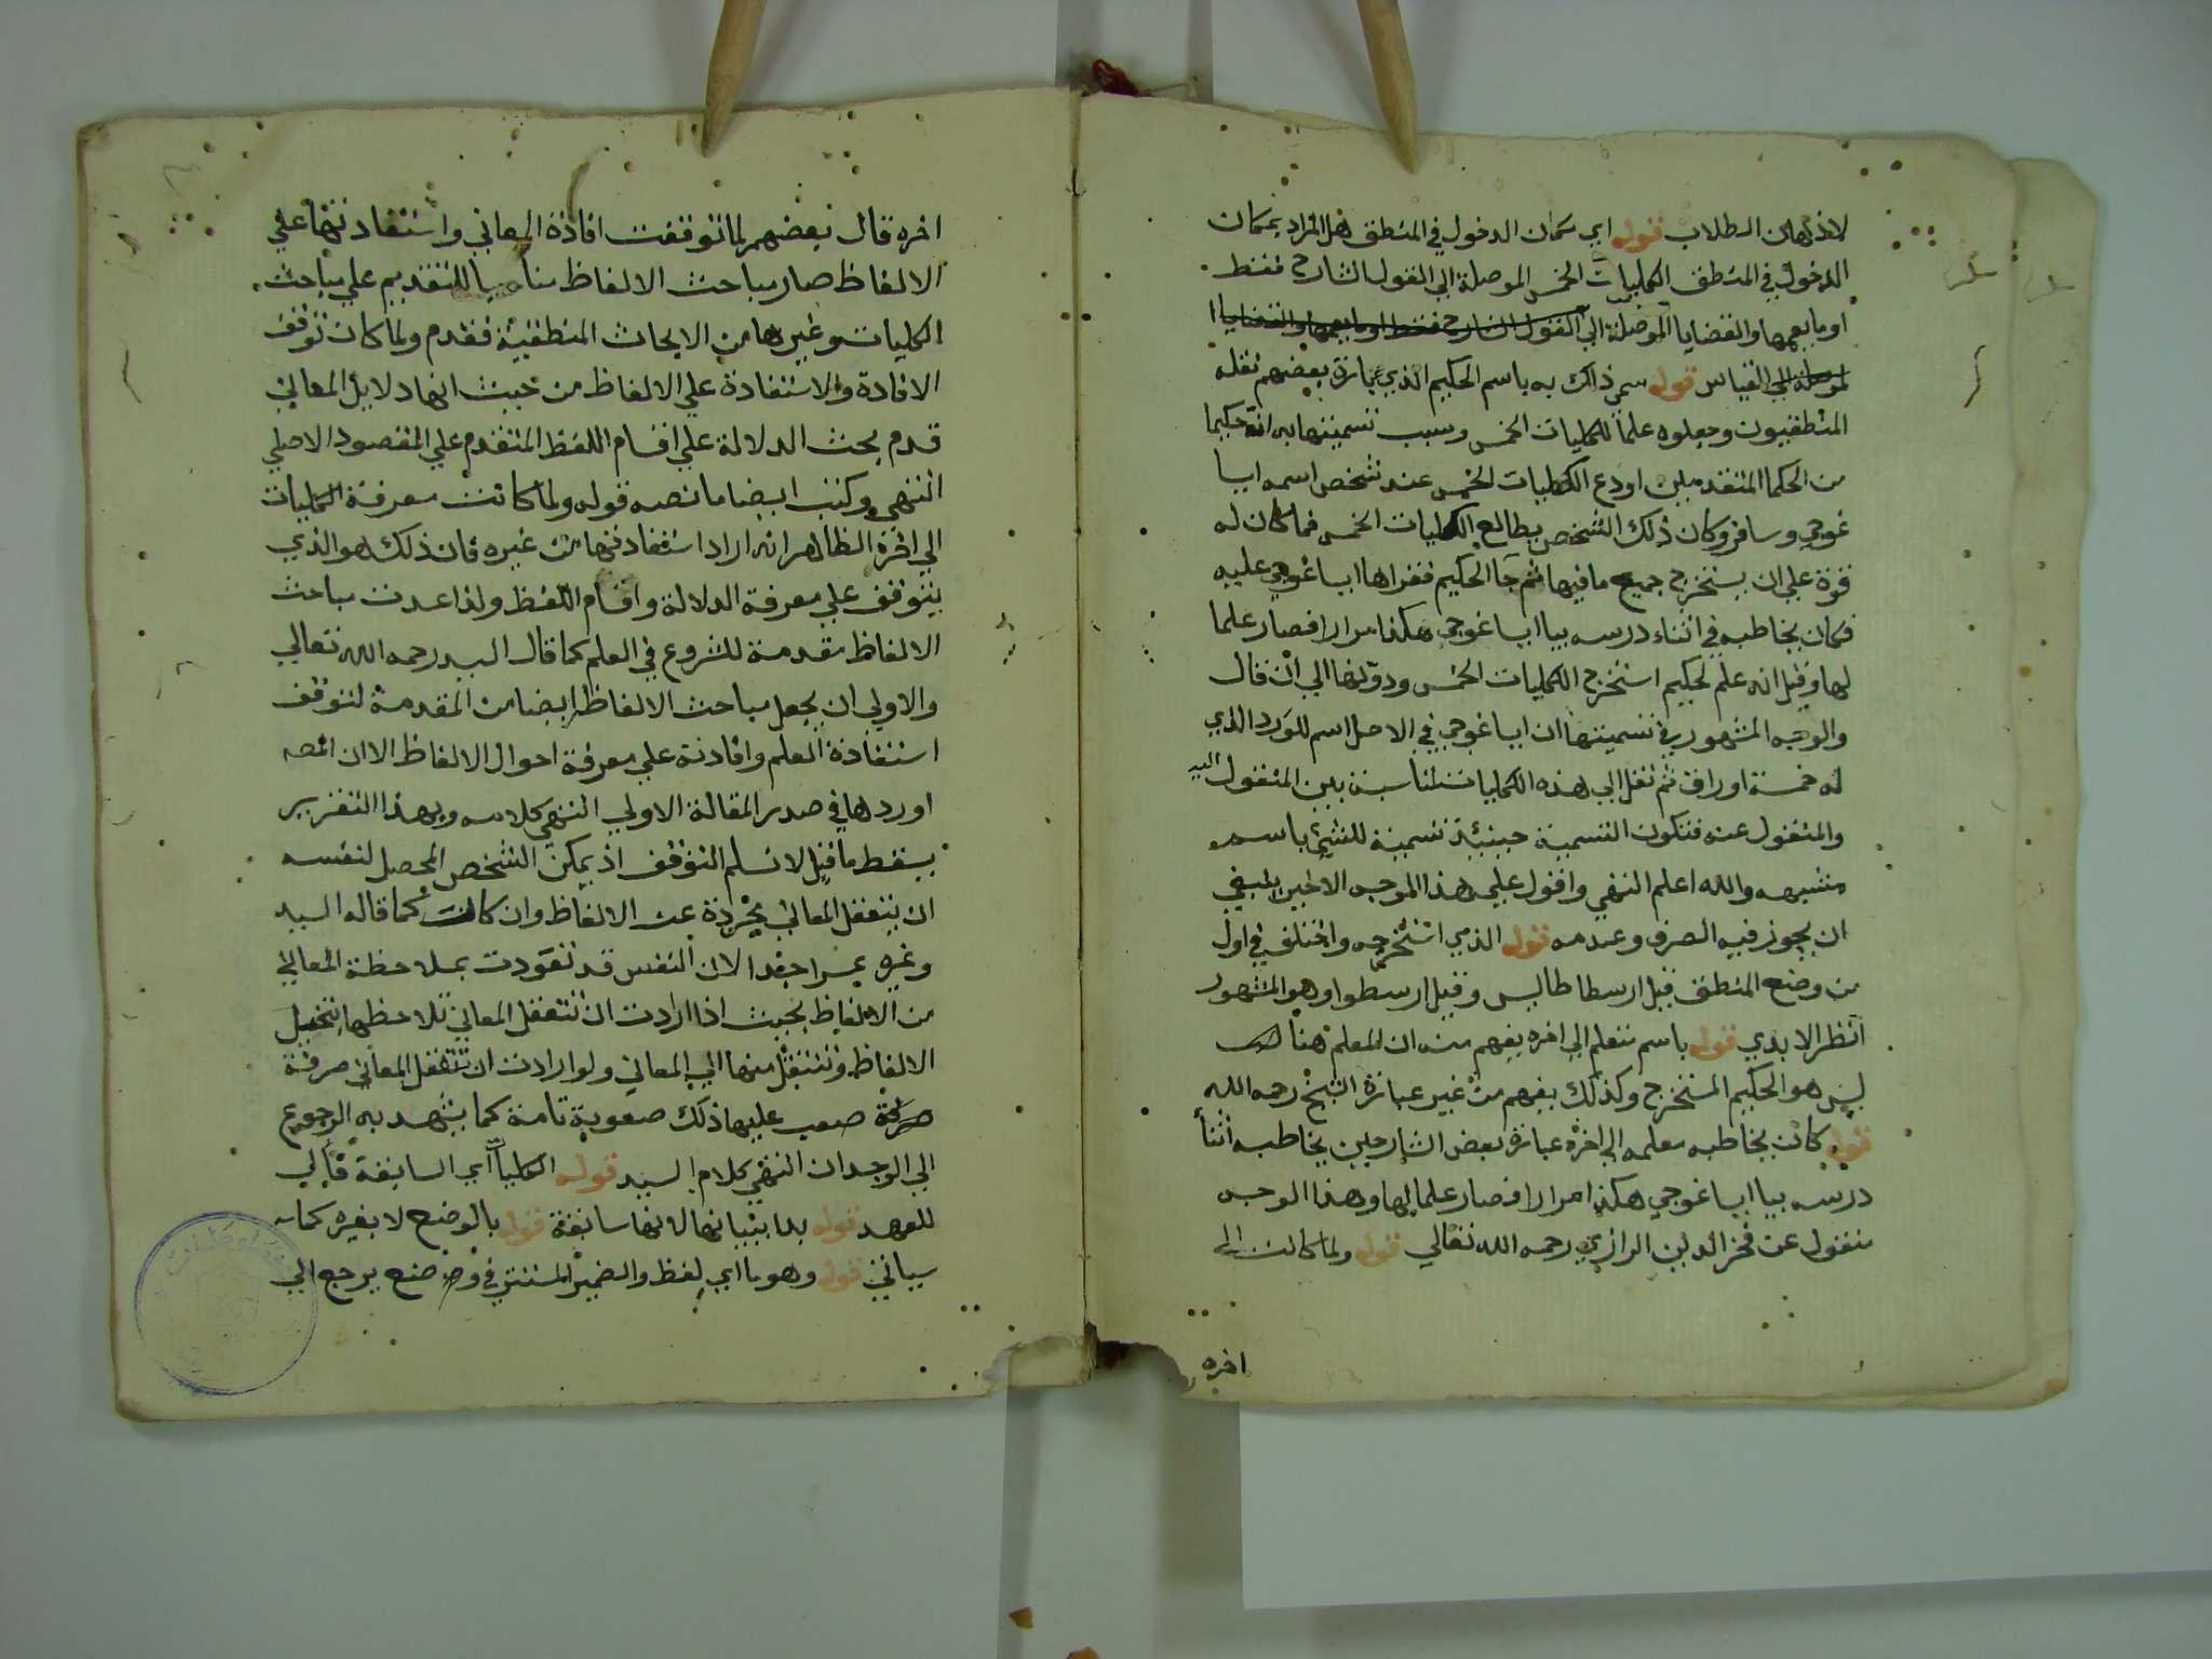 لاذهان الطلاب قوله اي مكان الدخول في المنطق هل المراد بمكان
الدخول في المنطق الكليات الخمس الموصلة الي القول الشارح فقط
او ما يعمها والقضايا الموصلة الي القول الشارح فقط او ما يعمها والقضايا ا
لموصلة الي القياس قوله سمي ذلك به باسم الحكيم الذي عبارة بعضهم نقله
المنطقيون وجعلوه علما للكليات الخمس وسبب تسميتها به ان حكيما
من الحكما المتقدمين اودع الكليات الخمس عند شخص اسمه ايسا
غوجي وسافر وكان ذلك الشخص يطالع الكليات الخمس فما كان له
قوة علي ان يستخرج جميع ما فيها ثم جا الحكيم فقراها ايساغوجي عليه
فكان يخاطبه في اثناء درسه بيا ايساغوجي هكذا مرارا فصار علما
لها وقيل انه علم لحكيم استخرج الكليات الخمس ودونها الي ان قال
والوجه المشهور في تسميتها ان ايساغوجي في الاصل اسم للورد الذي
له خمسة اوراق ثم نقل الي هذه الكليات لمناسبة بين المنقول اليه
والمنقول عنه فتكون التسمية حينئذ تسمية للشيء باسم
مشبهه والله اعلم انتهي واقول علي هذا الوجه الاخير ينبغي
ان يجوز فيه الصرف وعدمه قوله الذي استخرجه واختلف في اول
من وضع المنطق قيل ارسطاطاليس وقيل ارسطوا وهو المشهور
انظر الابدي قوله باسم متعلم الي اخره يفهم منه ان المعلم هنا
ليس هو الحكيم المستخرج وكذلك يفهم من غير عبارة الشيخ رحمه الله
قوله كان يخاطبه معلمه الي اخره عبارة بعض الشارحين يخاطبه اثنأ
درسه بيا ايساغوجي هكذا مرارا فصار علما لها وهذا الوجه
منقول عن فخر الدين الرازي رحمه الله تعالي قوله ولما كانت الي
اخره
اخره قال بعضهم لما توقفت افادة المعاني واستفادتها علي
الالفاظ صار مباحث الالفاظ مناسبا للتقديم علي مباحث
الكليات وغيرها من الابحاث المنطقية فقدم ولما كان توقف
الافادة والاستفادة علي الالفاظ من حيث انها دلايل المعاني
قدم بحث الدلالة علي اقسام اللفظ المتقدم علي المقصود الاصلي
انتهي وكتب ايضا ما نصه قوله ولما كانت معرفة الكليات
الي اخره الظاهر انه اراد استفادتها من غيره فان ذلك هو الذي
يتوقف علي معرفة الدلالة واقسام اللفظ ولذا عدت مباحث
الالفاظ مقدمة للشروع في العلم كما قال السيد رحمه الله تعالي
والاولي ان يجعل مباحث الالفاظ ايضا من المقدمة لتوقف
استفادة العلم وافادته علي معرفة احوال الالفاظ الا ان المصه
اوردها في صدر المقالة الاولي انتهي كلامه وبهذا التقرير
يسقط ما قيل لا نسلم التوقف اذ يمكن الشخص المحصل لنفسه
ان يتعقل المعاني مجردة عن الالفاظ وان كانت كما قاله السيد
وغيره عسرا جدا لان النفس قد تعودت بملاحظة المعاني
من الالفاظ بحيث اذا ارادت ان تتعقل المعاني تلاحظها بتخيل
الالفاظ وتنتقل منها الي المعاني ولو ارادت ان تتعقل المعاني صرفة
صعب عليها ذلك صعوبة تامة كما يشهد به الرجوع
الي الوجدان انتهي كلام السيد قوله الكليات اي السابقة فأل
للعهد قوله بدا ببيانها لانها سابقة قوله بالوضع لا بغيره كما
سياتي قوله وهو ما اي لفظ والضمير المستتر في وضع يرجع الي